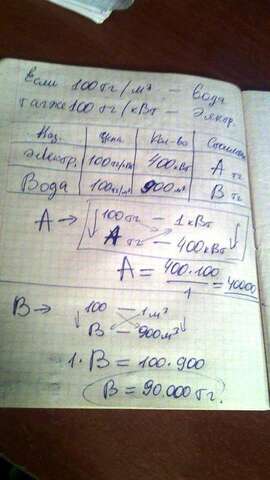 Если 100 тг/м³ – вода
также 100 тг/кВт – электр.
Наз. Цена Кол-во Стоимость
электр. 100 тг/кВт 400 кВт А тг
Вода 100 тг/м³ 900 м³ В тг
А → 100 тг – 1 кВт
А тг – 400 кВт
А = 400·100 / 1 = 40000
В → 100 – 1 м³
В – 900 м³
1·В = 100·900
В = 90.000 тг.